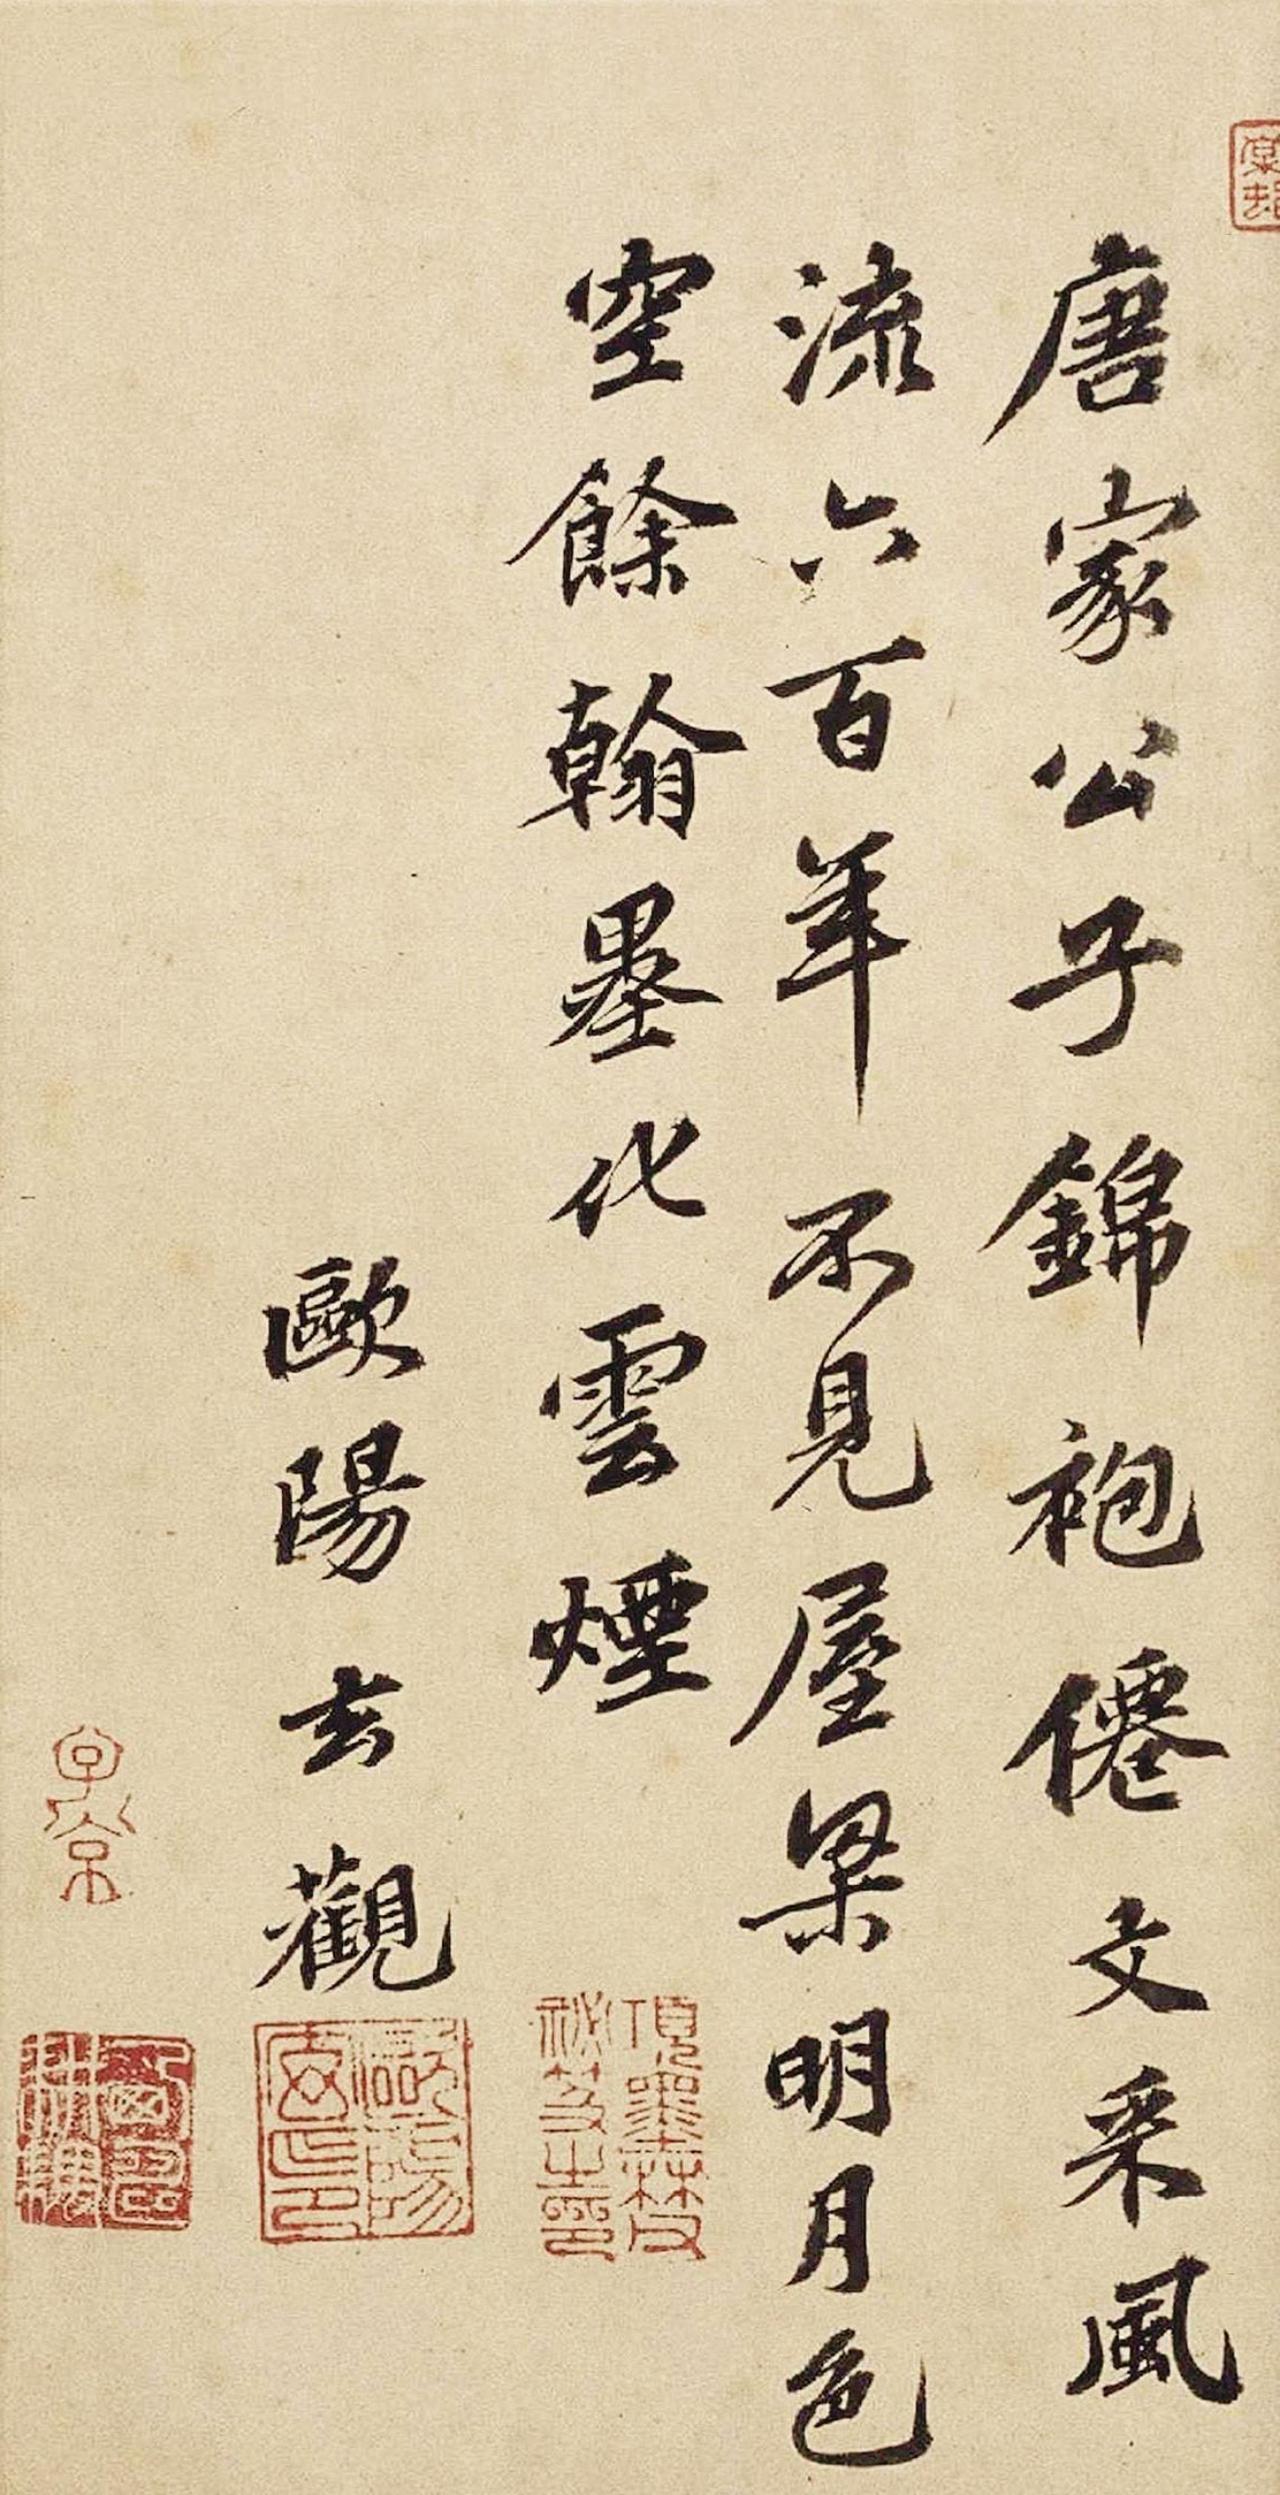 唐家公子錦袍僊文采風
流六百年不見屋梁明月色
空餘翰墨化雲煙
歐陽玄觀
項墨林父
祕笈之印
歐陽
玄印
子京